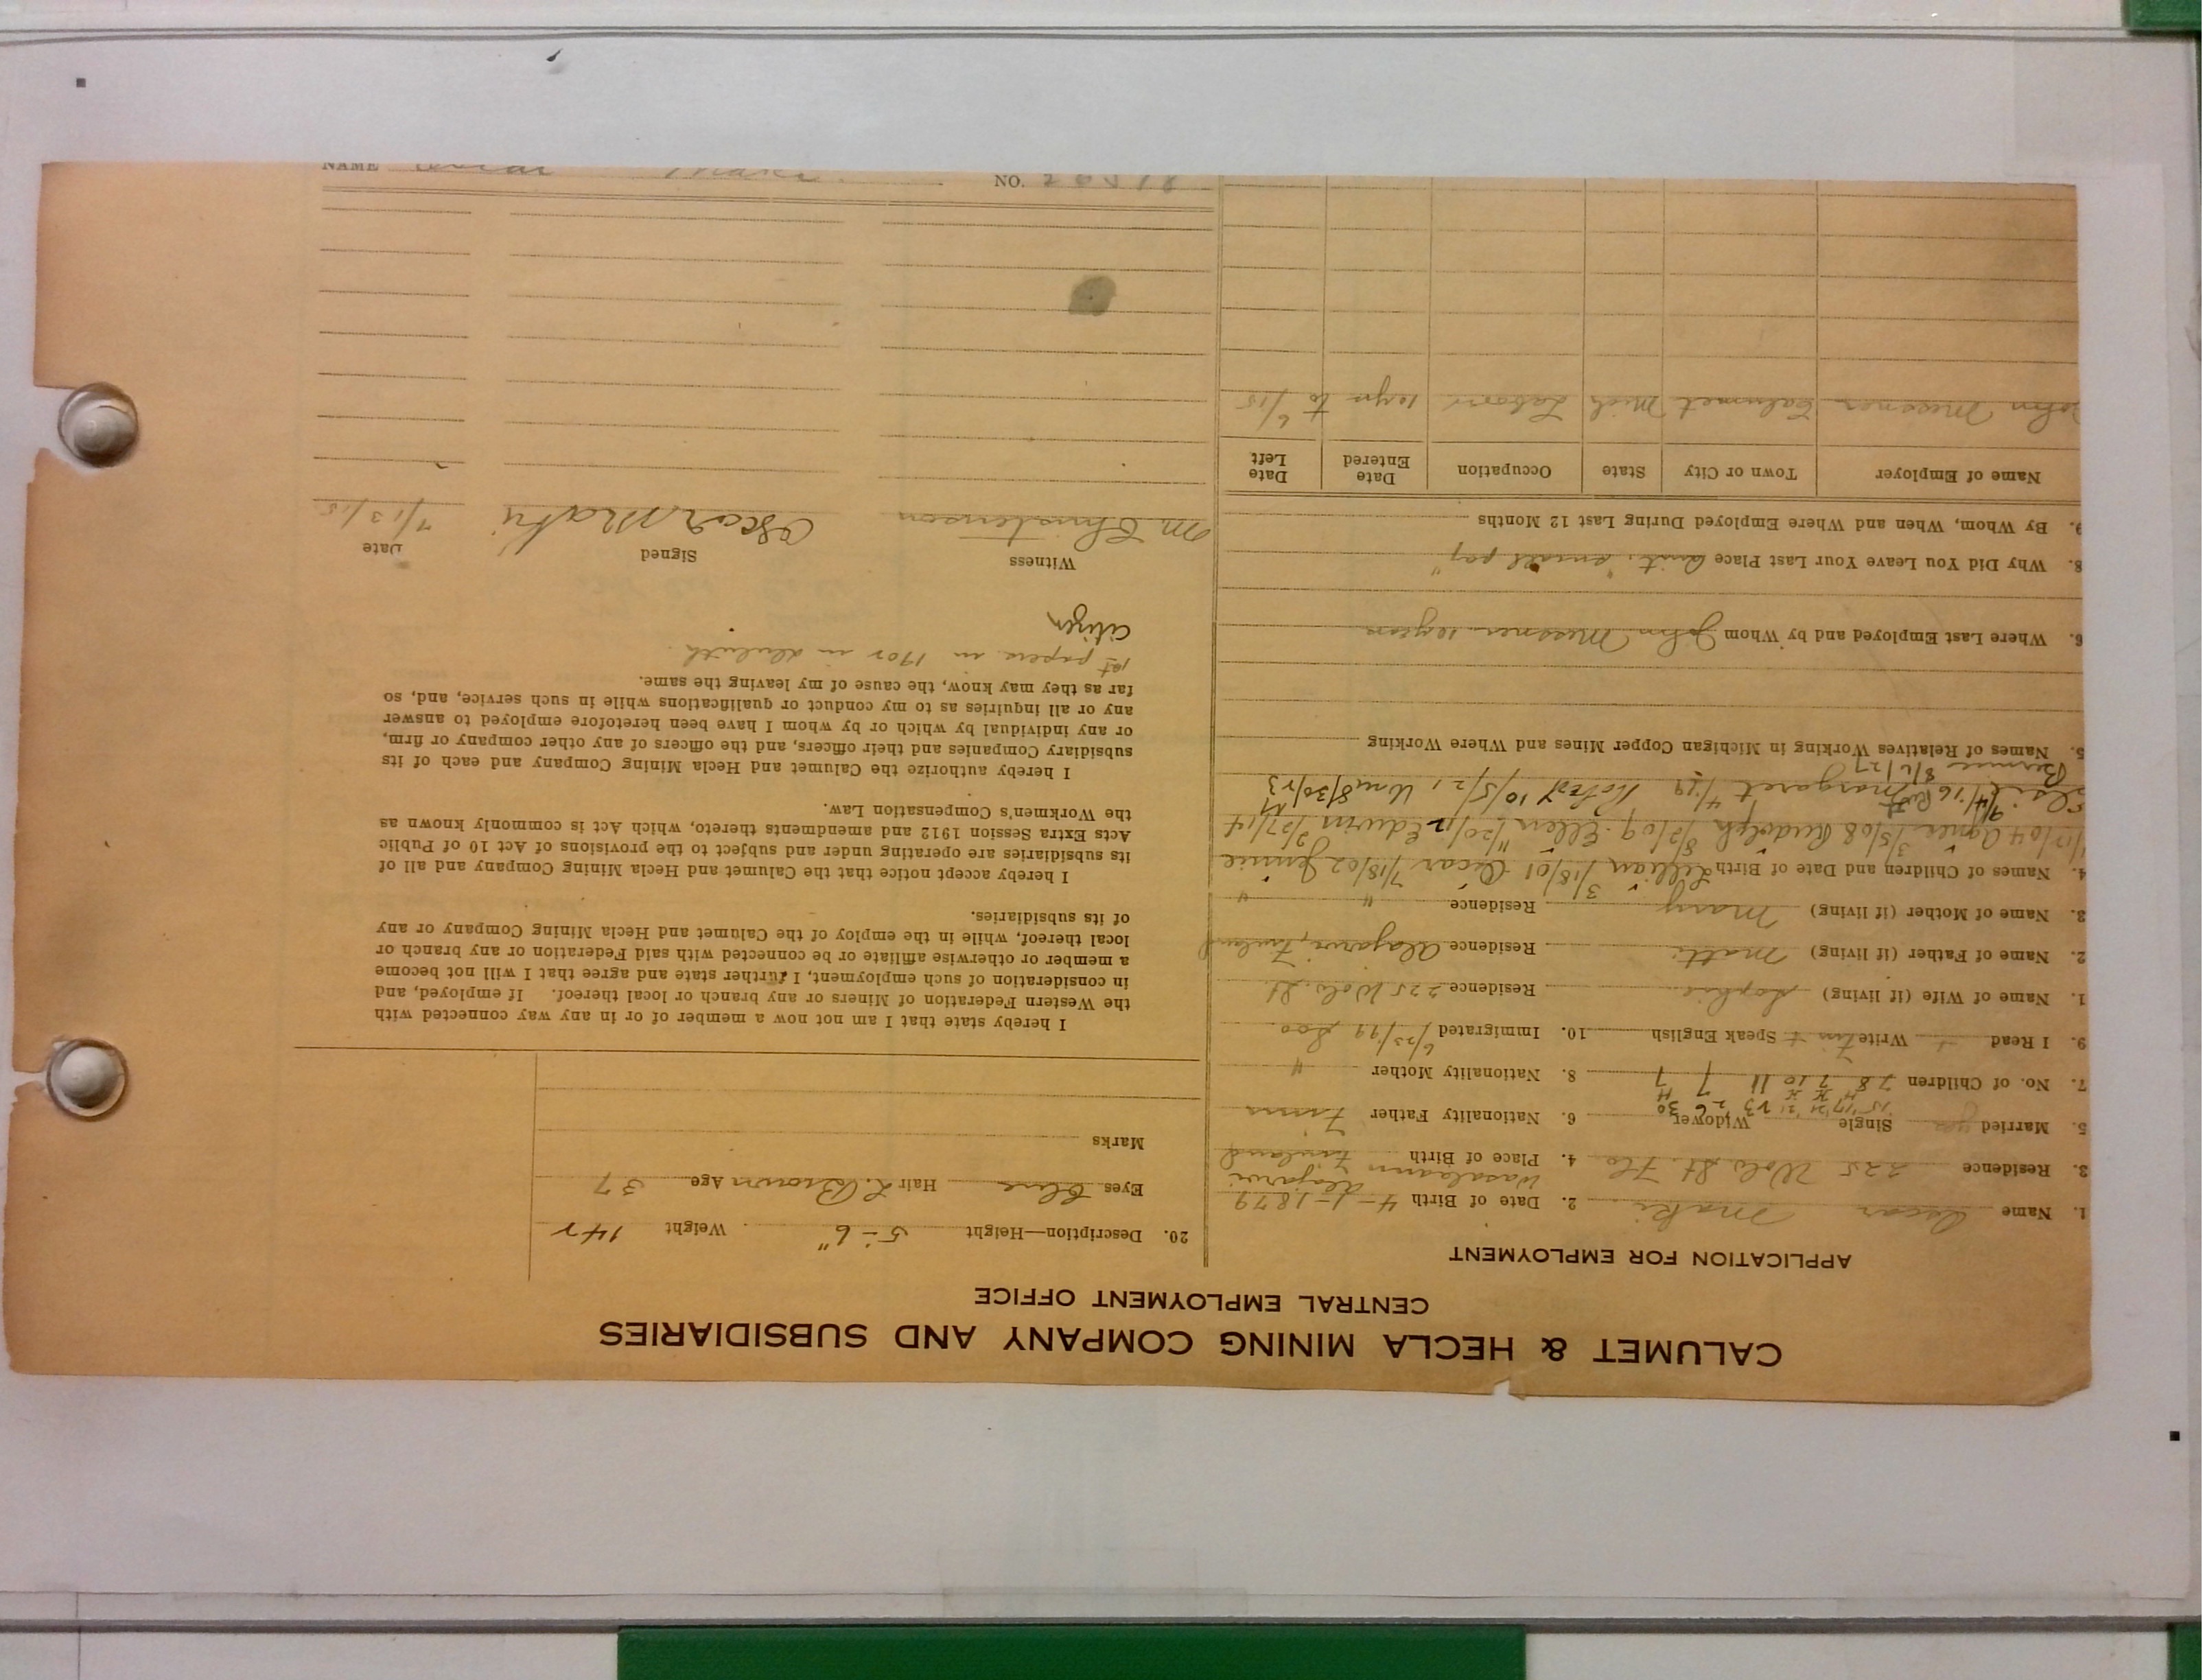 CALUMET & HECLA MINING COMPANY AND SUBSIDIARIES
CENTRAL EMPLOYMENT OFFICE
APPLICATION FOR EMPLOYMENT
1. Name Oscar Maki 2. Date of Birth 4-1-1879
3. Residence 225 Wols St. Flo 4. Place of Birth Finland
5. Married yes Single Widower 6. Nationality Father Finn
7. No. of Children 7 8 7 10 11 7 7 8. Nationality Mother "
9. I Read + Write Finn + Speak English 10. Immigrated 6/23/99 Soo
1. Name of Wife (if living) Sophie Residence 225 Wols. St
2. Name of Father (if living) Matti Residence Alajarvi, Finland
3. Name of Mother (if living) Mary Residence " "
4. Names of Children and Date of Birth Lillian 3/18/01 Oscar 7/18/02 Jennie
Agnes 3/5/08 Rudolph 8/2/09 Ellen 11/20/12 Edwin 2/27/14
Elsie 9/4/16 Margaret 4/19 Robert 10/5/21 Wm 8/30/23
Bernice 8/6/27
5. Names of Relatives Working in Michigan Copper Mines and Where Working
6. Where Last Employed and by Whom John Messner
8. Why Did You Leave Your Last Place Quit. "small pay"
9. By Whom, When and Where Employed During Last 12 Months
Name of Employer Town or City State Occupation Date Entered Date Left
John Messner Calumet Mich Labor to 6/15
20. Description—Height 5-6" Weight 142
Eyes Blue Hair L. Brown Age 37
Marks
I hereby state that I am not now a member of or in any way connected with
the Western Federation of Miners or any branch or local thereof. If employed, and
in consideration of such employment, I further state and agree that I will not become
a member or otherwise affiliate or be connected with said Federation or any branch or
local thereof, while in the employ of the Calumet and Hecla Mining Company or any
of its subsidiaries.
I hereby accept notice that the Calumet and Hecla Mining Company and all of
its subsidiaries are operating under and subject to the provisions of Act 10 of Public
Acts Extra Session 1912 and amendments thereto, which Act is commonly known as
the Workmen's Compensation Law.
I hereby authorize the Calumet and Hecla Mining Company and each of its
subsidiary Companies and their officers, and the officers of any other company or firm,
or any individual by which or by whom I have been heretofore employed to answer
any or all inquiries as to my conduct or qualifications while in such service, and, so
far as they may know, the cause of my leaving the same.
1st papers in in Duluth.
Citizen
Witness Signed Date
M Christenson Oscar Maki 7/13/15
NAME Oscar Maki NO.